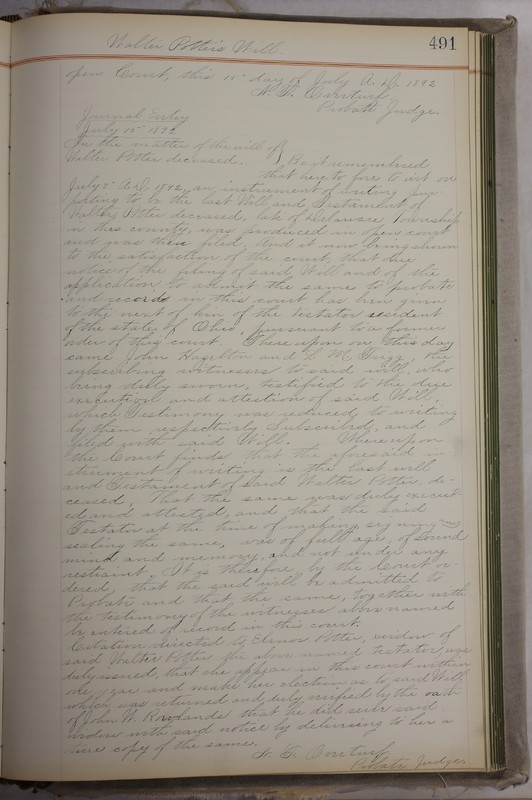 Walter Potter's Will. 491
open Court, this 15" day of July A. D. 1892
Probate Judge.
Journal Entry
July 15" 1892
In the matter of the will of
Walter Potter deceased. } Be it remembered
that here to fore to wit on
July 5" A.D. 1892, an instrument of writing pur-
porting to be the last Will and Testament of
Walter Potter deceased, late of Delaware Township
in this county, was produced in open court
and was then filed, And it now being shown
to the satisfaction of the court, that due
notice of the filing of said Will and of the
application to admit the same to probate
and record in this court has been given
to the next of kin of the testator resident
of the state of Ohio, pursuant to a former
order of this court. There upon on this day
came John Hazelton and C. M. the
subscribing witnesses to said will, who
being duly sworn, testified to the due
execution and attestion of said Will,
which Testimony was reduced to writing
by them respectively subscribed, and
filed with said Will. Whereupon
the Court finds that the aforesaid in-
strument of writing is the last will
and Testament of said Walter Potter, de-
ceased, that the same was duly execut-
ed and attested, and that the said
Testator at the time of making, signing and
sealing the same, was of full age, of sound
mind and memory, and not under any
restraint. It is therefore by the Court or-
dered, that the said will be admitted to
Probate and that the same, together with
the testimony of the witnesses above named
be entered of record in this court.
Citation directed to Potter, widow of
said Walter Potter the above named testator was
duly issued, that she appear in this court within
one year and make her election as to said Will
which was returned and duly verified by the oath
of John W. Rowlands that he did serve said
widow with said notice by delivering to her a
true copy of the same.
Probate Judge